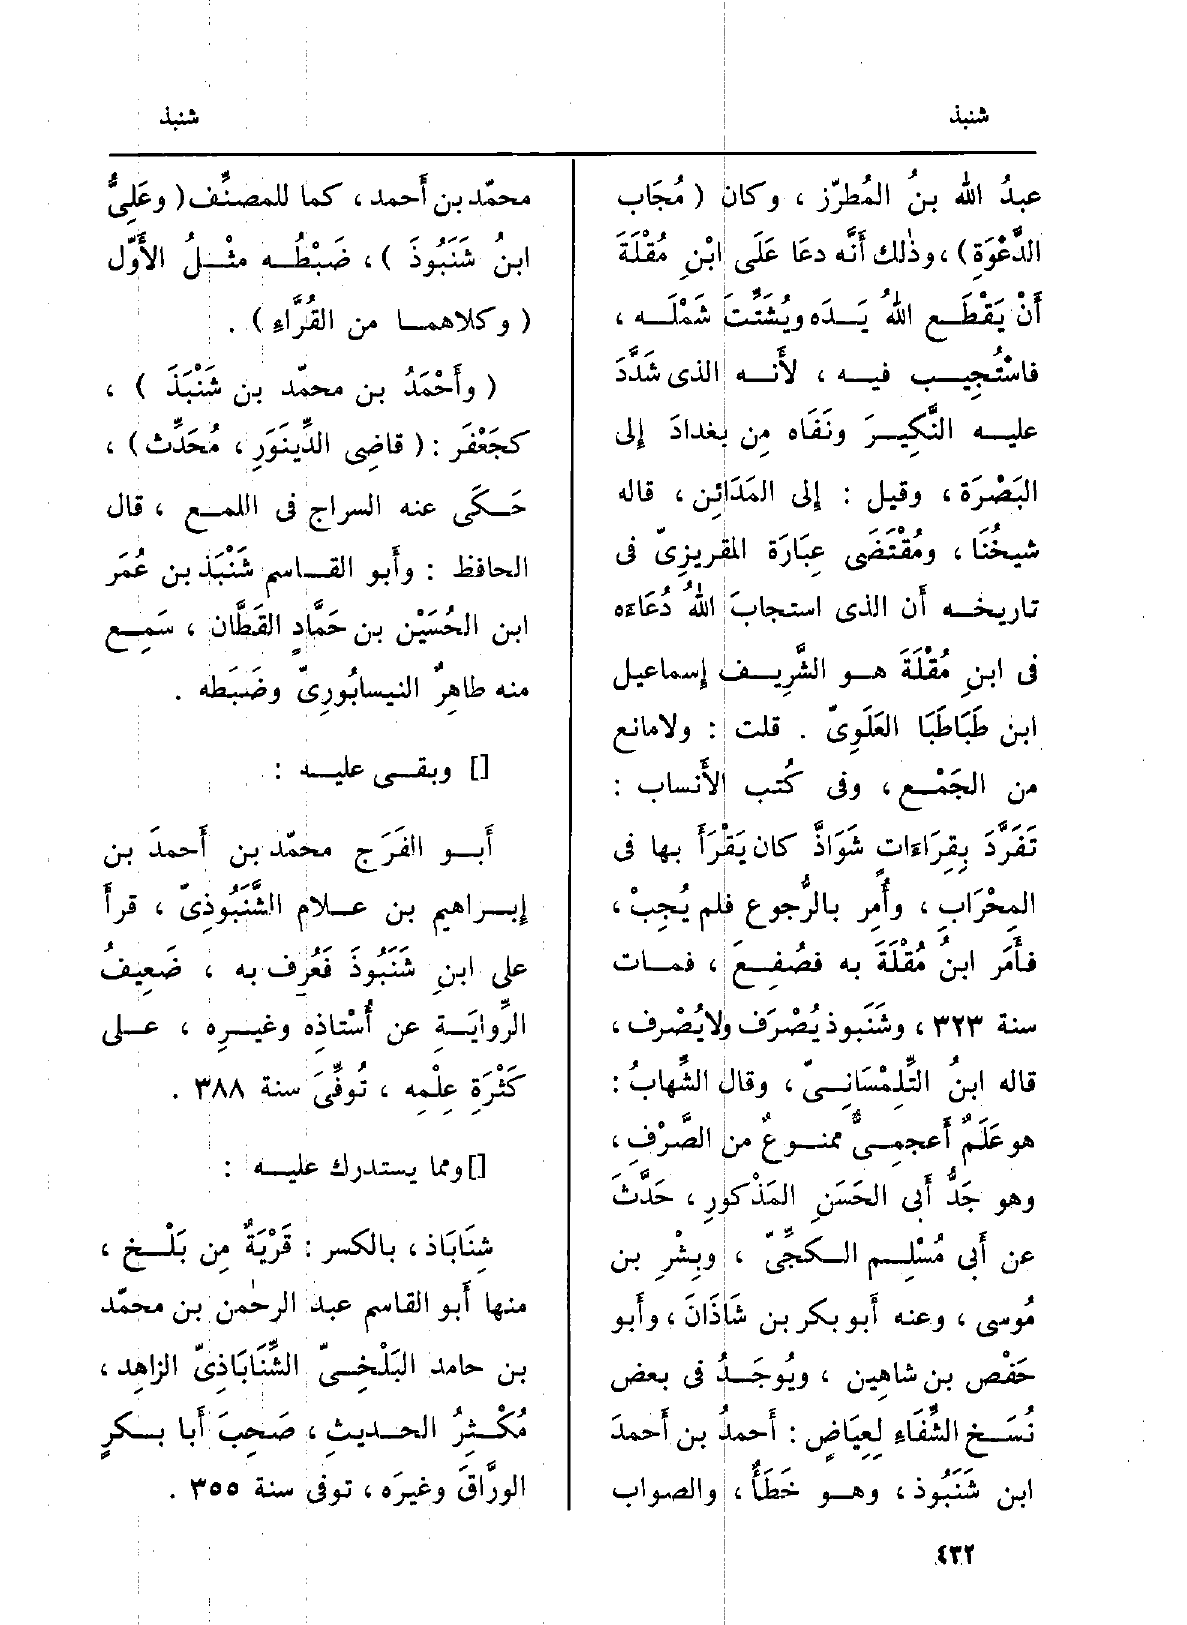 شنبذ
شنبذ
عبدُ الله بنُ المُطرّز ، وكان ( مُجَاب
الدَّعْوَةِ) ، وذٰلك أَنَّه دعَا عَلَى ابْنِ مُقْلَةَ
أَنْ يَقْطَع اللهُ يَدَه ويُشَتِّتَ شَمْلَه ،
فاسْتُجِيب فيه ، لأَنه الذى شَدَّدَ
عليه النَّكِيرَ ونَفَاه مِن بغدادَ إِلى
البَصْرَة ، وقيل : إِلى المَدَائِن ، قاله
شيخُنَا ، ومُقْتَضَى عِبَارَة المقريزىّ فى
تاريخه أَن الذى استجابَ اللهُ دُعَاءَه
فى ابنِ مُقْلَةَ هو الشَّرِيف إِسماعيل
ابن طَبَاطَبَا العَلَوِىّ . قلت : ولامانع
من الجَمْع ، وفى كُتب الأَنساب :
تَفَرَّدَ بِقِرَاءَاتٍ شَوَاذَّ كان يَقْرَأُ بها فى
المِحْرَابِ ، وأُمِر بالرُّجوع فلم يُجِبْ ،
فأَمَر ابنُ مُقْلَةَ به فصُفِعَ ، فمات
سنة ٣٢٣ ، وشَنَبوذ يُصْرَف ولايُصْرف ،
قاله ابنُ التِّلِمْسَانِىّ ، وقال الشِّهابُ :
هو عَلَمٌ أَعجمىٌّ ممنوعٌ من الصَّرْفِ ،
وهو جَدُّ أَبى الحَسَنِ المَذْكورِ ، حَدَّثَ
عن أَبى مُسْلِم الكجِّىّ ، وبِشْرِ بن
مُوسى ، وعنه أَبو بكر بن شَاذَانَ ، وأَبو
حَفْص بن شاهِين ، ويُوجَدُ فى بعض
نُسَخ الشِّفَاءِ لِعِيَاضٍ : أَحمدُ بن أَحمدَ
ابن شَنَبُوذ ، وهو خَطَأٌ ، والصواب
محمّد بن أَحمد ، كما للمصنِّف ( وعَلِىُّ
ابنُ شَنَبُوذَ ) ، ضَبْطُه مثْلُ الأَوّل
( وكلاهما من القُرَّاءِ ) .
( وأَحْمَدُ بن محمّد بن شَنْبَذَ ) ،
كجَعْفَر : ( قاضِى الدِّينَوَرِ ، مُحَدِّث ) ،
حَكَى عنه السراج فى اللمع ، قال
الحافظ : وأَبو القاسم شَنْبَذ بن عُمَر
ابن الحُسَيْن بن حَمَّادٍ القَطَّان ، سَمِع
منه طاهِرٌ النيسابُورِىّ وضَبَطه .
[] وبقى عليه :
أَبو الفَرَج محمّد بن أَحمدَ بن
إِبراهيم بن علام الشَّنَبُوذِىّ ، قرأَ
على ابنِ شَنَبُوذَ فَعُرِف به ، ضَعِيفُ
الرِّوايَةِ عن أُسْتاذِه وغيرِه ، على
كَثْرَةِ عِلْمِه ، تُوفِّىَ سنة ٣٨٨ .
[] ومما يستدرك عليه :
شِنَابَاذ ، بالكسر : قَرْيَةٌ مِن بَلْخ ،
منها أَبو القاسم عبد الرحمٰن بن محمّد
بن حامد البَلْخِىّ الشِّنَابَاذِىّ الزاهِد ،
مُكْثِرُ الحديثِ ، صَحِبَ أَبا بكرٍ
الورَّاقَ وغيرَه ، توفى سنة ٣٥٥ .
٤٣٢